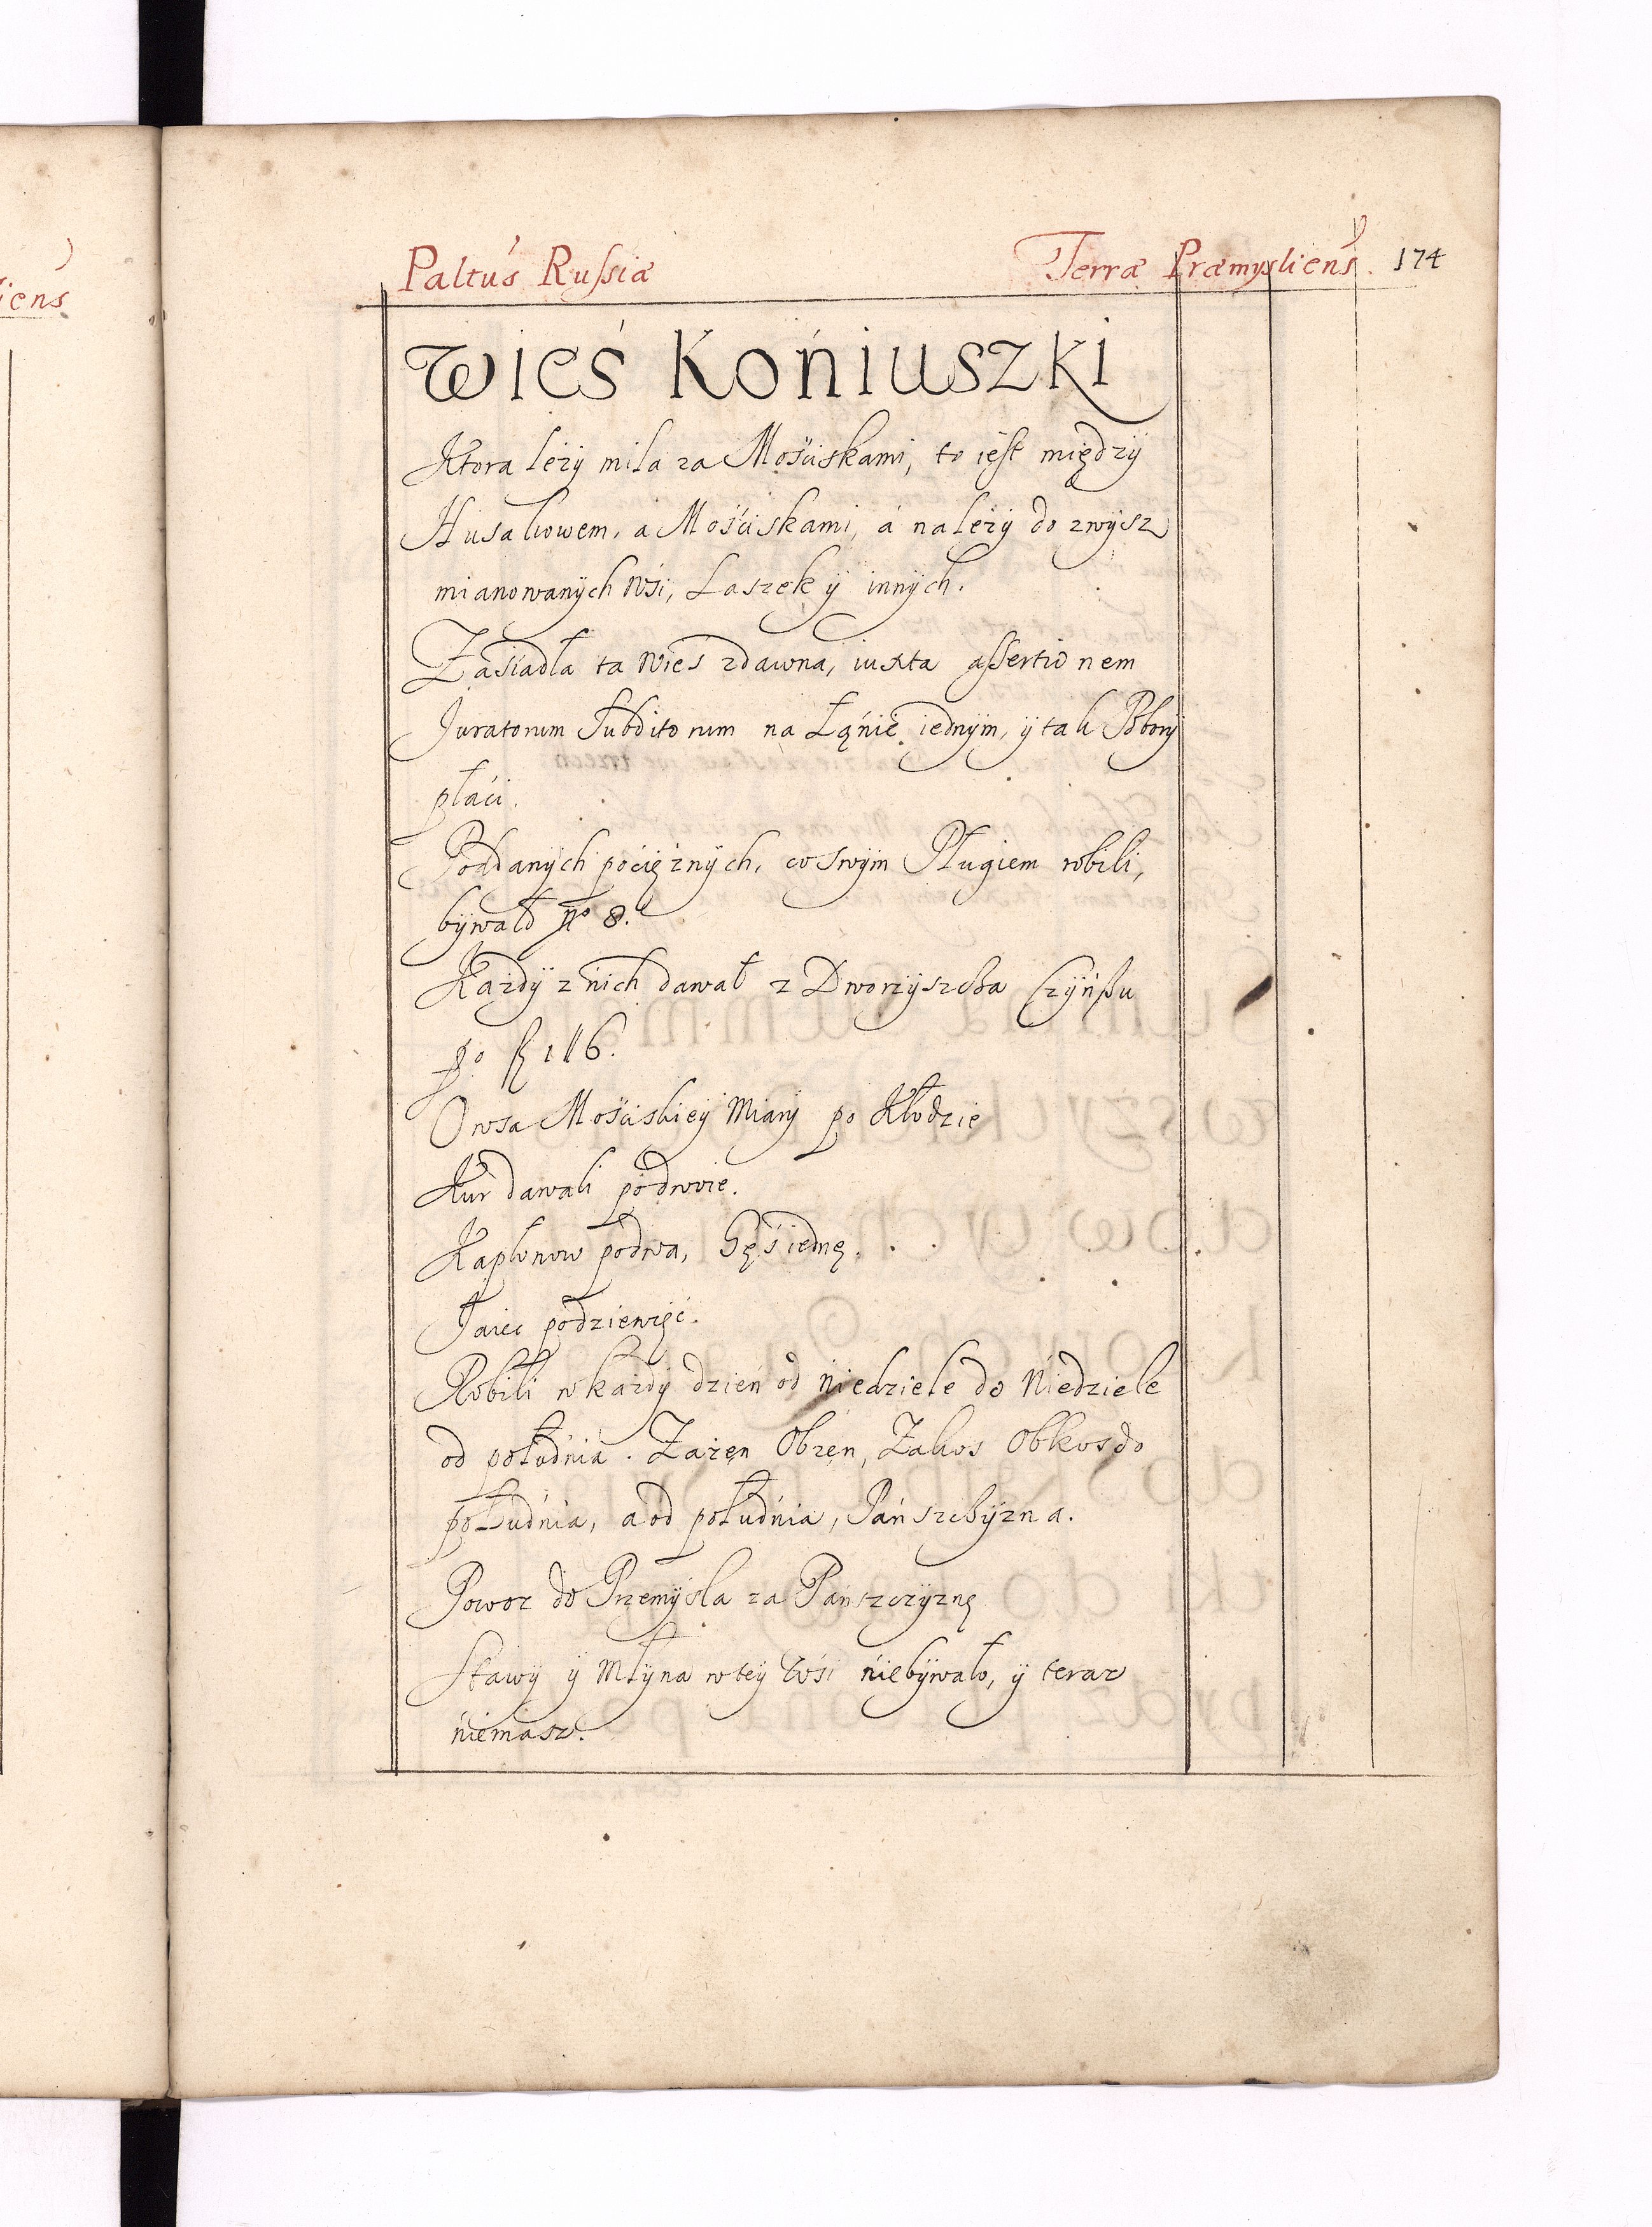 iens
Paltus Russiæ Terræ Præmysliens. 174
Wieś Końiuszki
Ktora leży mila za Mościskami, to iest między
Husakowem, a Mościskami, á należy do zwysz
mianowanych Wśi, Laszek ÿ innÿch.
Zaśiadła ta Wieś zdawna, iuxta assertionem
Juratorum Subditorum na Łąńie iednÿm, ÿ tak Pobory
płaći.
Poddanÿch poćiężnÿch, co swÿm Pługiem robili,
bÿwało No 8.
Kazdÿ z ńich dawał z Dworzÿscża Czÿńszu
po fl 1 || 6.
Owsa Mośćiskieÿ Miarÿ po Kłodzie
Kur dawali po dwoie.
Kapłonow po dwa, Gęś iednę.
Jaiec po dziewięć.
Robili w kazdÿ dzień od Niedziele do Niedziele
od połudńia. Zażęn Obżęn, Zakos Obkos do
połudńia, a od połudńia, Pańszcżÿzna.
Powoz do Przemÿśla za Pańszczÿznę
Stawÿ ÿ Młÿna w teÿ Wśi ńiebÿwało, ÿ teraz
ńiemasz.